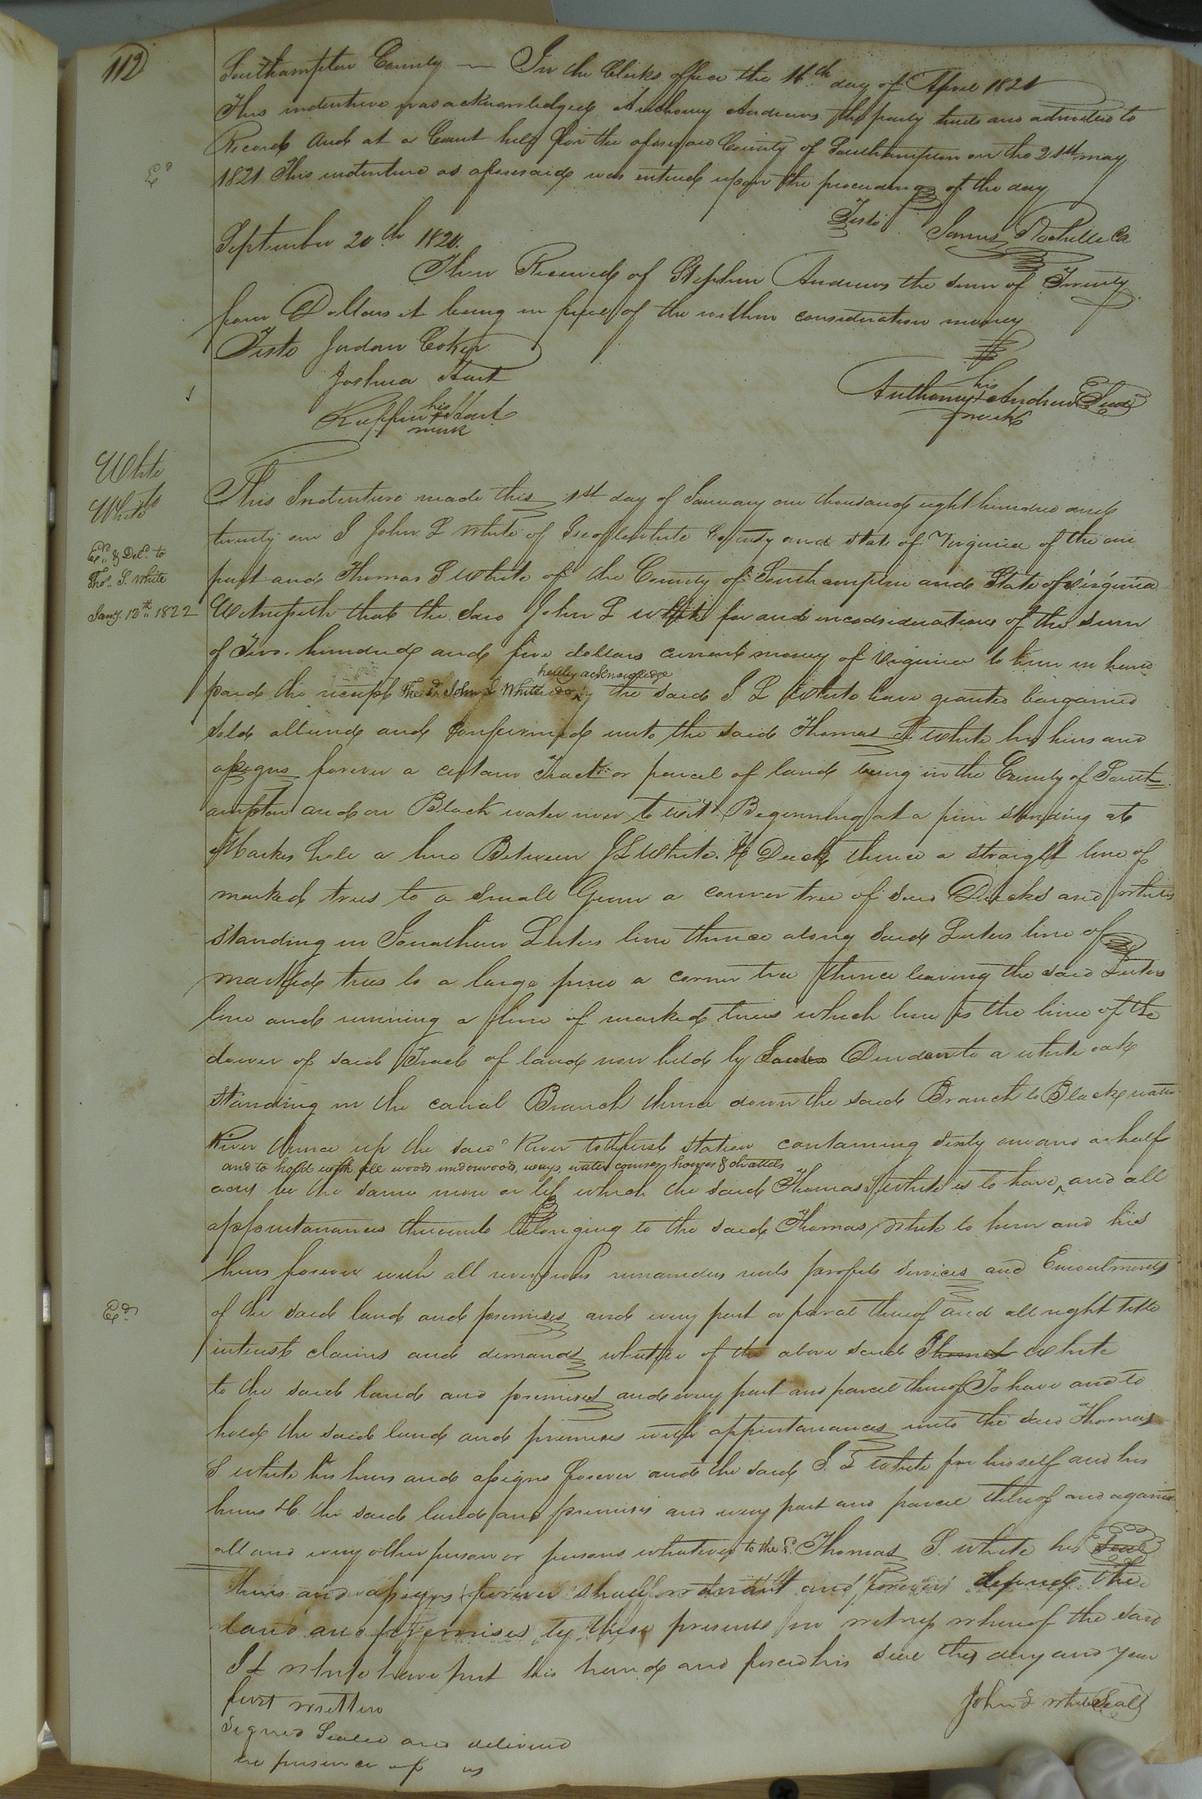 112
Southampton County — In the Clerks office the 16th day of April 1821
This indenture was acknowledged Anthony Andrews the party thereto and admitted to
Record And at a Court held for the aforesaid County of Southampton on the 21st may
1821 This indenture as aforesaid was entered upon the proceedings of the day
Teste James Rochelle Ck
Exd
September 20th 1820.
Then Received of Stephen Andrews the sum of Twenty
four Dollars it being in full of the within consideration money
Teste Jordan Coker
Joshua Hart
his
Anthony + Andrews Seal
mark
his
Hart
mark
White
to
White
Exd & Deld to
Thos. S. White
Jany. 13th 1822
This Indenture made this 1st day of January one thousand eight hundred and
twenty one I John L White of Isle of white County and state of Virginia of the one
part and Thomas S White of the County of Southampton and State of Virginia
Witnesseth that the said John L white for and inconsiderations of the sum
of Two hundred and five dollars current money of Virginia to him in hand
hereby acknowledge
paid the receipt the sd. John L White do, the said J L White have granted bargained
sold aliened and confirmed unto the said Thomas S white his hiers and
assigns forever a certain Tract or parcel of land being in the County of South
ampton and on Black water river to wit Beginning at a pine standing at
a line Between J L White. & Duck thence a straight line of
marked trees to a small Gum a corner tree of said Ducks and whites
standing in Jonathan Luters line thence along said Luters line of
marked trees to a large pine a corner tree thence leaving the said Luters
line and running a line of marked trees which line is the line of the
dower of said Tract of land now held by Darden to a white oak
standing in the canal Branch thence down the said Branch to Blackwater
River thence up the said River to the first station containing sixty one and a half
and to hold with all woods underwoods, ways, water courses, houses &
acres be the same more or less which the said Thomas S white is to have, and all
appurtanances thereunto belonging to the said Thomas white to him and his
hiers forever with all reversions remainders rents profits services and Emoluments
Exd
of the said land and premises and every part or parcel thereof and all right title
interest claims and demands whatsoe of the above said Thomas white
to the said land and premises and every part and parcel thereof To have and to
hold the said land and premises with appurtanances unto the said Thomas
S white his hiers and assigns forever and the said J. L white for himself and his
hiers &c the said land and premises and every part and parcel thereof and against
all and every other person or persons whatever to the sd. Thomas S. white his
hiers and assigns forever shall warrant and forever defend the
land and premises by these presents in witness whereof the said
J L white have put his hand and fixed his seal the day and year
first written
John L white Seal
Signed Sealed and delivered
in presence of us